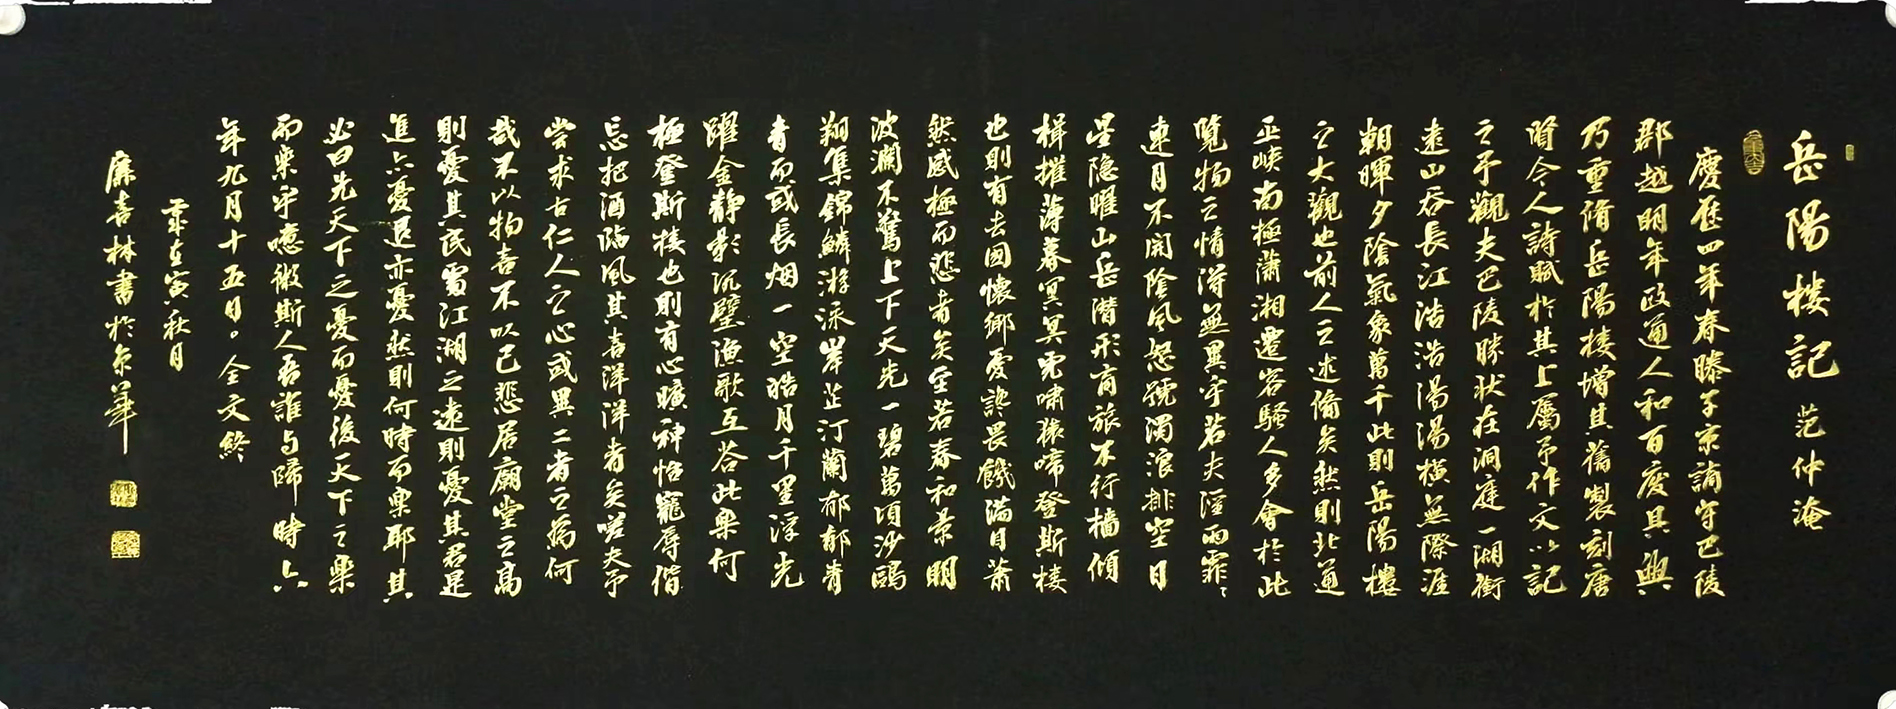 岳陽楼記 范仲淹
慶歷四年春滕子京謫守巴陵
郡越明年政通人和百廢具興
乃重脩岳陽楼增其舊製刻唐
賢今人詩賦於其上屬予作文以記
之予觀夫巴陵勝狀在洞庭一湖銜
遠山吞長江浩浩湯湯橫無際涯
朝暉夕陰氣象萬千此則岳陽樓
之大觀也前人之述備矣然則北通
巫峽南極瀟湘遷客騷人多會於此
覽物之情得無異乎若夫淫雨霏〻
連月不開陰風怒號濁浪排空日
星隱曜山岳潛形商旅不行檣傾
楫摧薄暮冥冥虎嘯猿啼登斯楼
也則有去國懷鄉憂讒畏饑滿目蕭
然感極而悲者矣至若春和景明
波瀾不驚上下天光一碧萬頃沙鷗
翔集錦鱗游泳岸芷汀蘭郁郁青
青而或長烟一空皓月千里浮光
躍金靜影沉璧漁歌互答此樂何
極登斯楼也則有心曠神怡寵辱偕
忘把酒臨風其喜洋洋者矣嗟夫予
嘗求古仁人之心或異二者之為何
哉不以物喜不以己悲居廟堂之高
則憂其民處江湖之遠則憂其君是
進亦憂退亦憂然則何時而樂耶其
必曰先天下之憂而憂後天下之樂
而樂乎噫微斯人吾誰与歸時六
年九月十五日。全文終
寅秋月
廉喜林書於京華